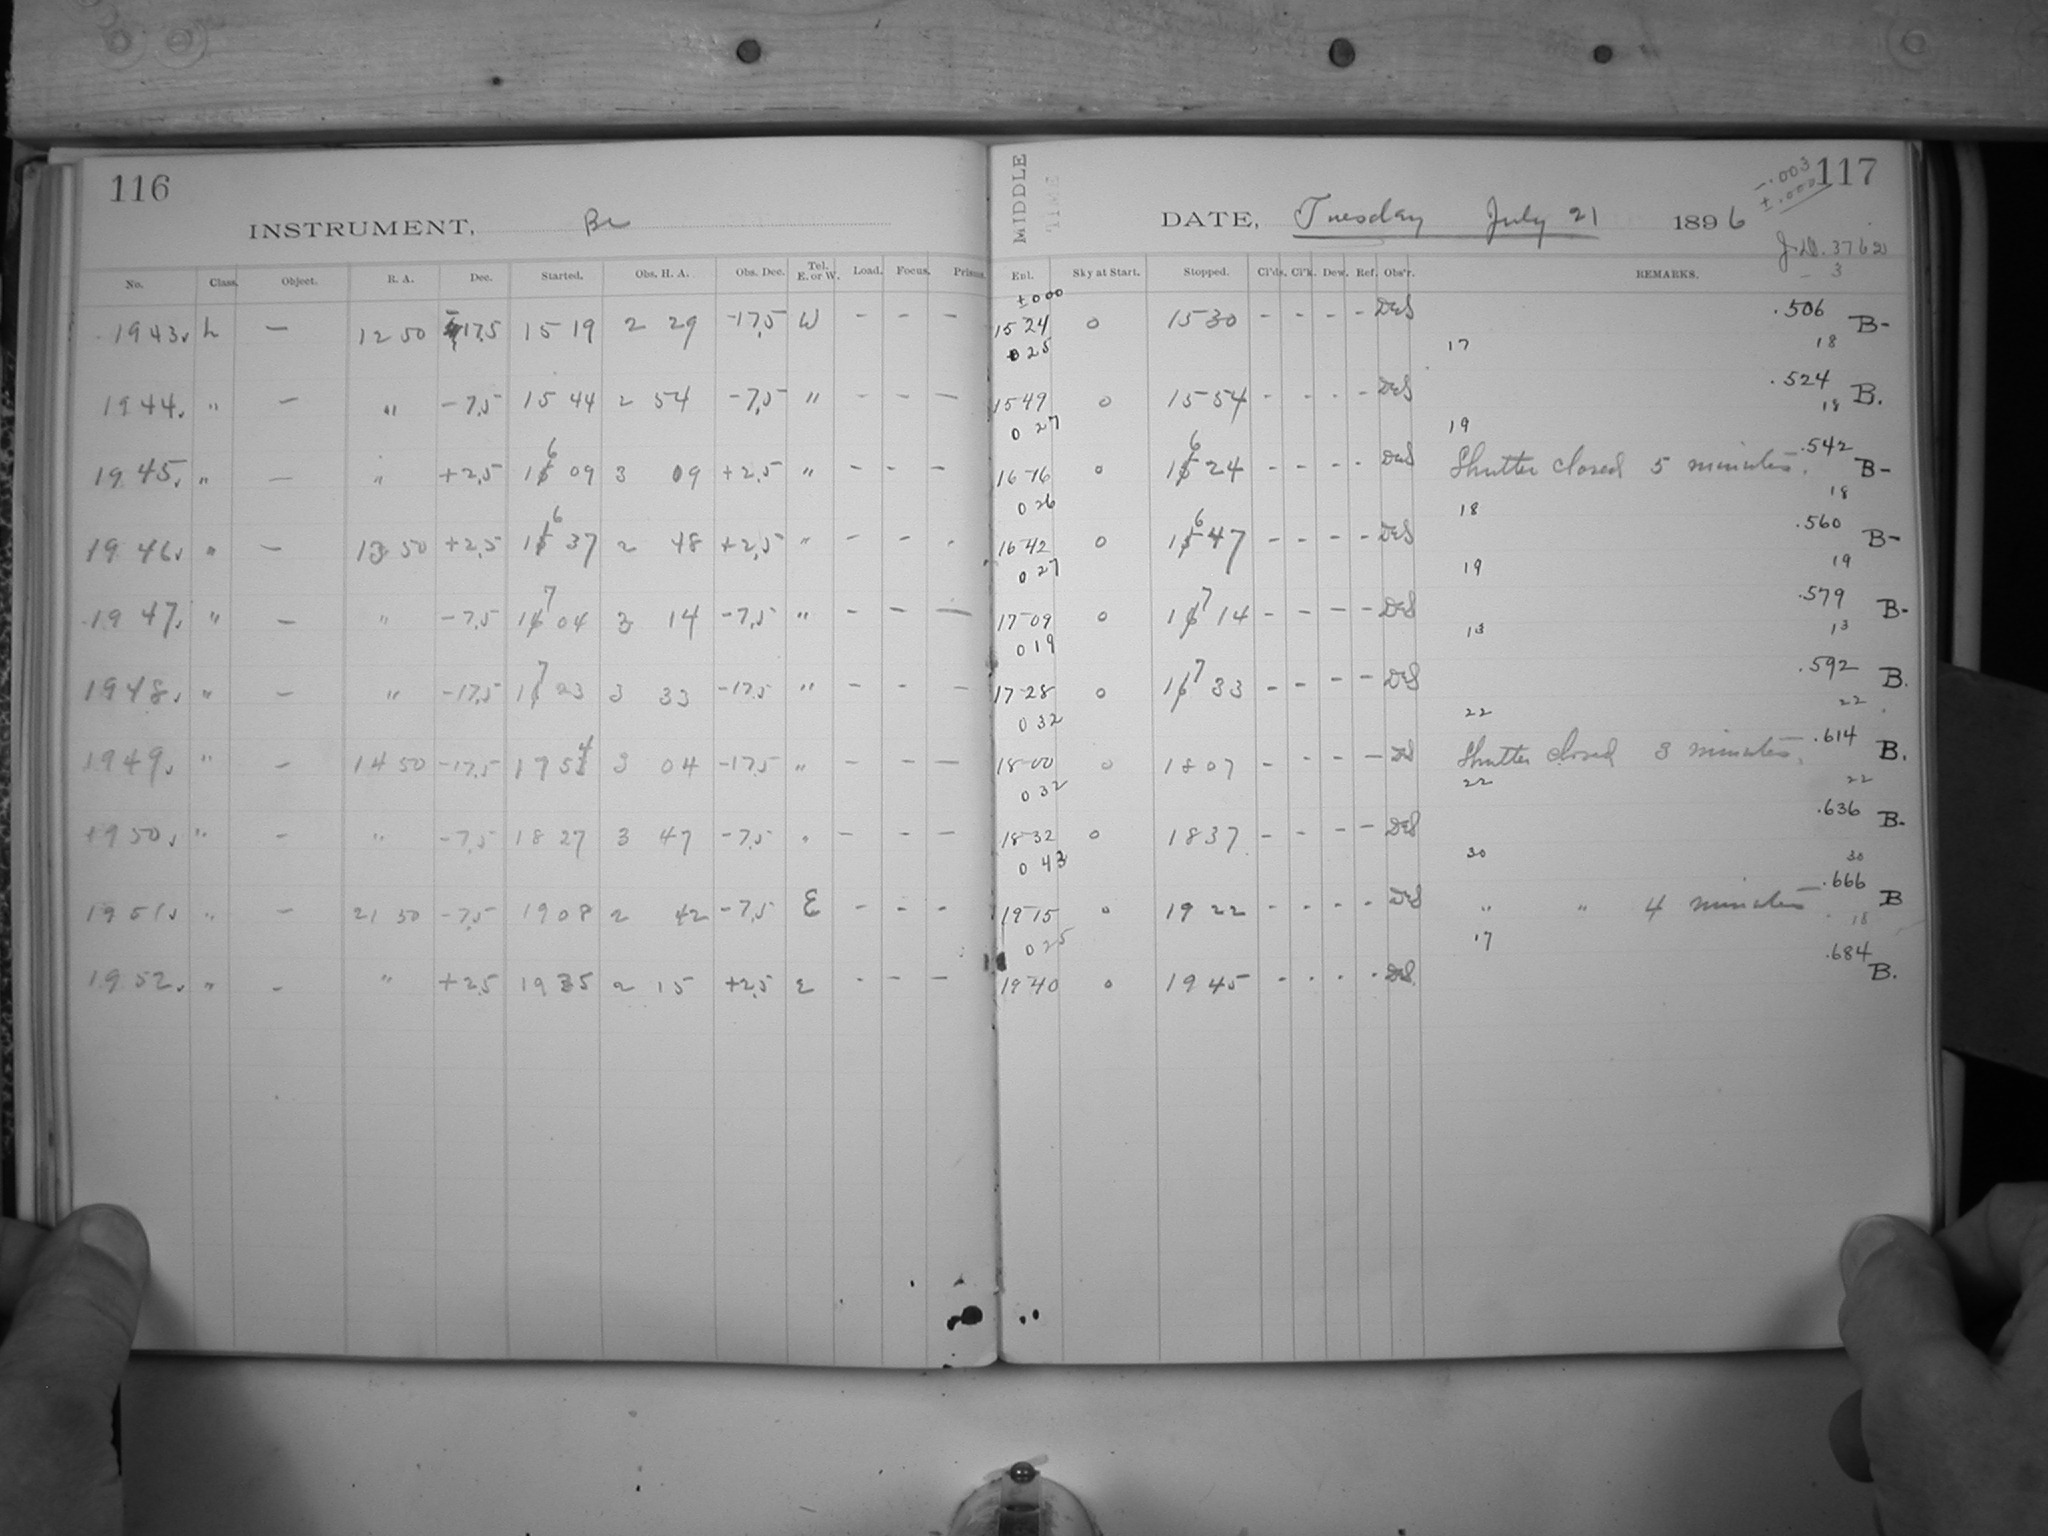 116
INSTRUMENT, Be
No. Class. Object. R. A. Dec. Started. Obs. H. A. Obs. Dec. Tel. E. or W. Load. Focus. Prisms.
1943. L — 12 50 -17,5 15 19 2 29 -17,5 W - - -
1944. " — " -7,5 15 44 2 54 -7,5 " - - -
1945. " — " +2,5 16 09 3 09 +2,5 " - - -
1946. " — 13 50 +2,5 16 37 2 48 +2,5 " - - -
1947. " — " -7,5 17 04 3 14 -7,5 " - - -
1948. " — " -17,5 17 23 3 33 -17,5 " - - -
1949. " — 14 50 -17,5 17 54 3 04 -17,5 " - - -
1950. " — " -7,5 18 27 3 47 -7,5 " - - -
1951. " — 21 50 -7,5 19 08 2 42 -7,5 E - - -
1952. " — " +2,5 19 35 2 15 +2,5 E - - -
MIDDLE TIME
DATE, Tuesday July 21 1896
-.003
±.000
117
J.D. 3762
- 3
Enl. Sky at Start. Stopped. Cl'ds. Cl'k. Dew. Ref. Obs'r. REMARKS.
±000
15 24 0 15 30 - - - - DeS .506 B-
0 25 17 18
15 49 0 15 54 - - - - DeS .524 B.
0 27 19 18
16 16 0 16 24 - - - - DeS Shutter closed 5 minutes. .542 B-
0 26 18 18
16 42 0 16 47 - - - - DeS .560 B-
0 27 19 19
17 09 0 17 14 - - - - DeS .579 B-
0 19 13 13
17 28 0 17 33 - - - - DeS .592 B.
0 32 22 22
18 00 0 18 07 - - - - DeS Shutter closed 3 minutes. .614 B.
0 32 22 22
18 32 0 18 37 - - - - DeS .636 B-
0 43 30 30
19 15 0 19 22 - - - - DeS " " 4 minutes .666 B
0 25 17 18
19 40 0 19 45 - - - - DeS .684 B.